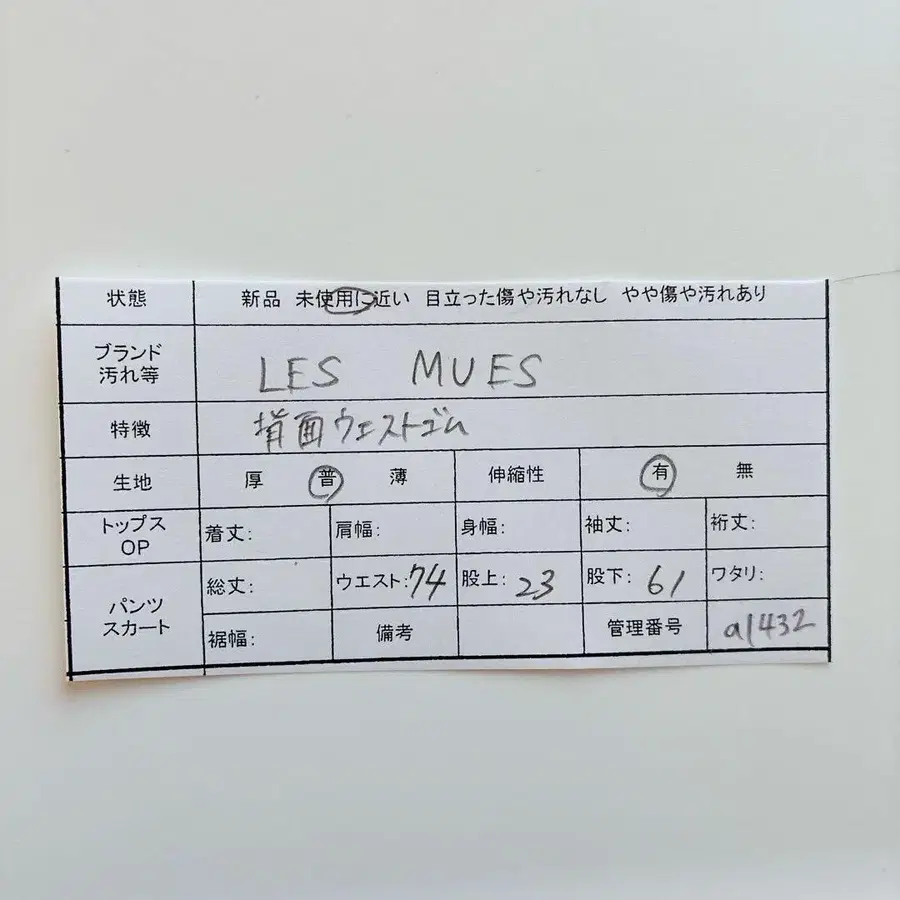 状態 新品 未使用に近い 目立った傷や汚れなし やや傷や汚れあり
ブランド
汚れ等
LES MUES
特徴 背面ウエストゴム
生地 厚 普 薄 伸縮性 有 無
トップス
OP
着丈: 肩幅: 身幅: 袖丈: 裄丈:
パンツ
スカート
総丈: ウエスト:74 股上:23 股下:61 ワタリ:
裾幅: 備考 管理番号 a1432